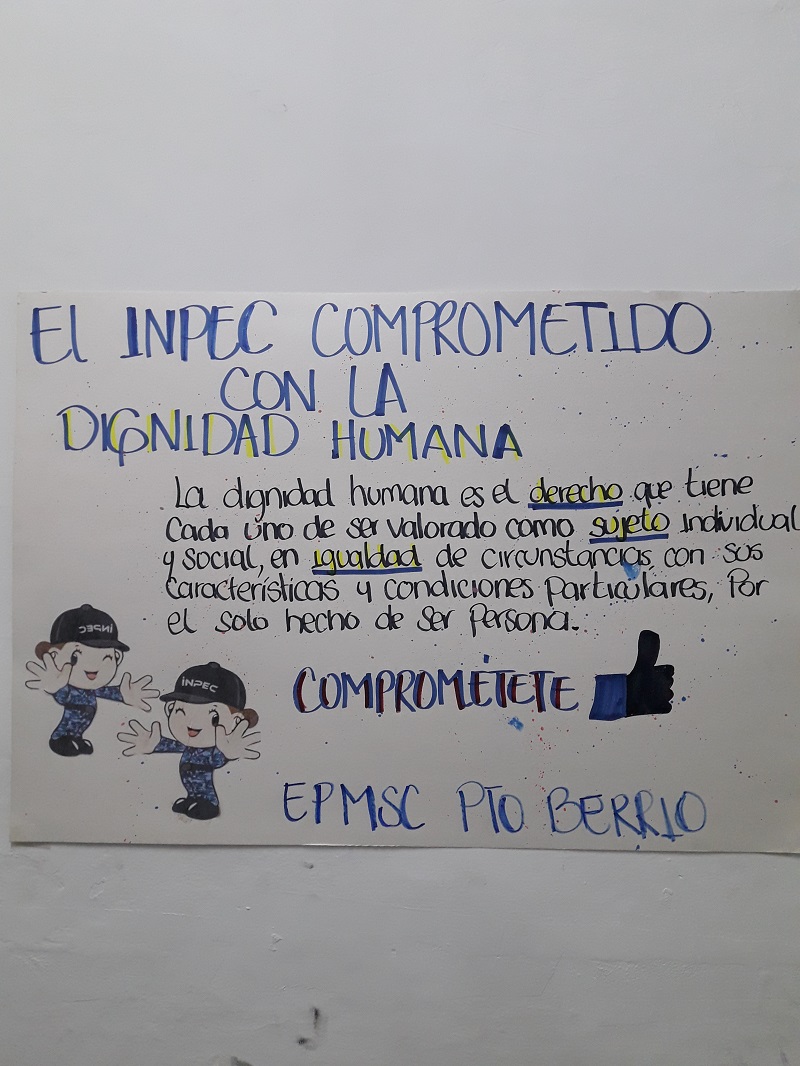 El INPEC COMPROMETIDO
CON LA
DIGNIDAD HUMANA
La dignidad humana es el derecho que tiene
cada uno de ser valorado como sujeto individual
y social, en igualdad de circunstancias, con sus
características y condiciones particulares, Por
el solo hecho de ser Persona.
INPEC
INPEC
COMPROMÉTETE
EPMSC PTO BERRIO